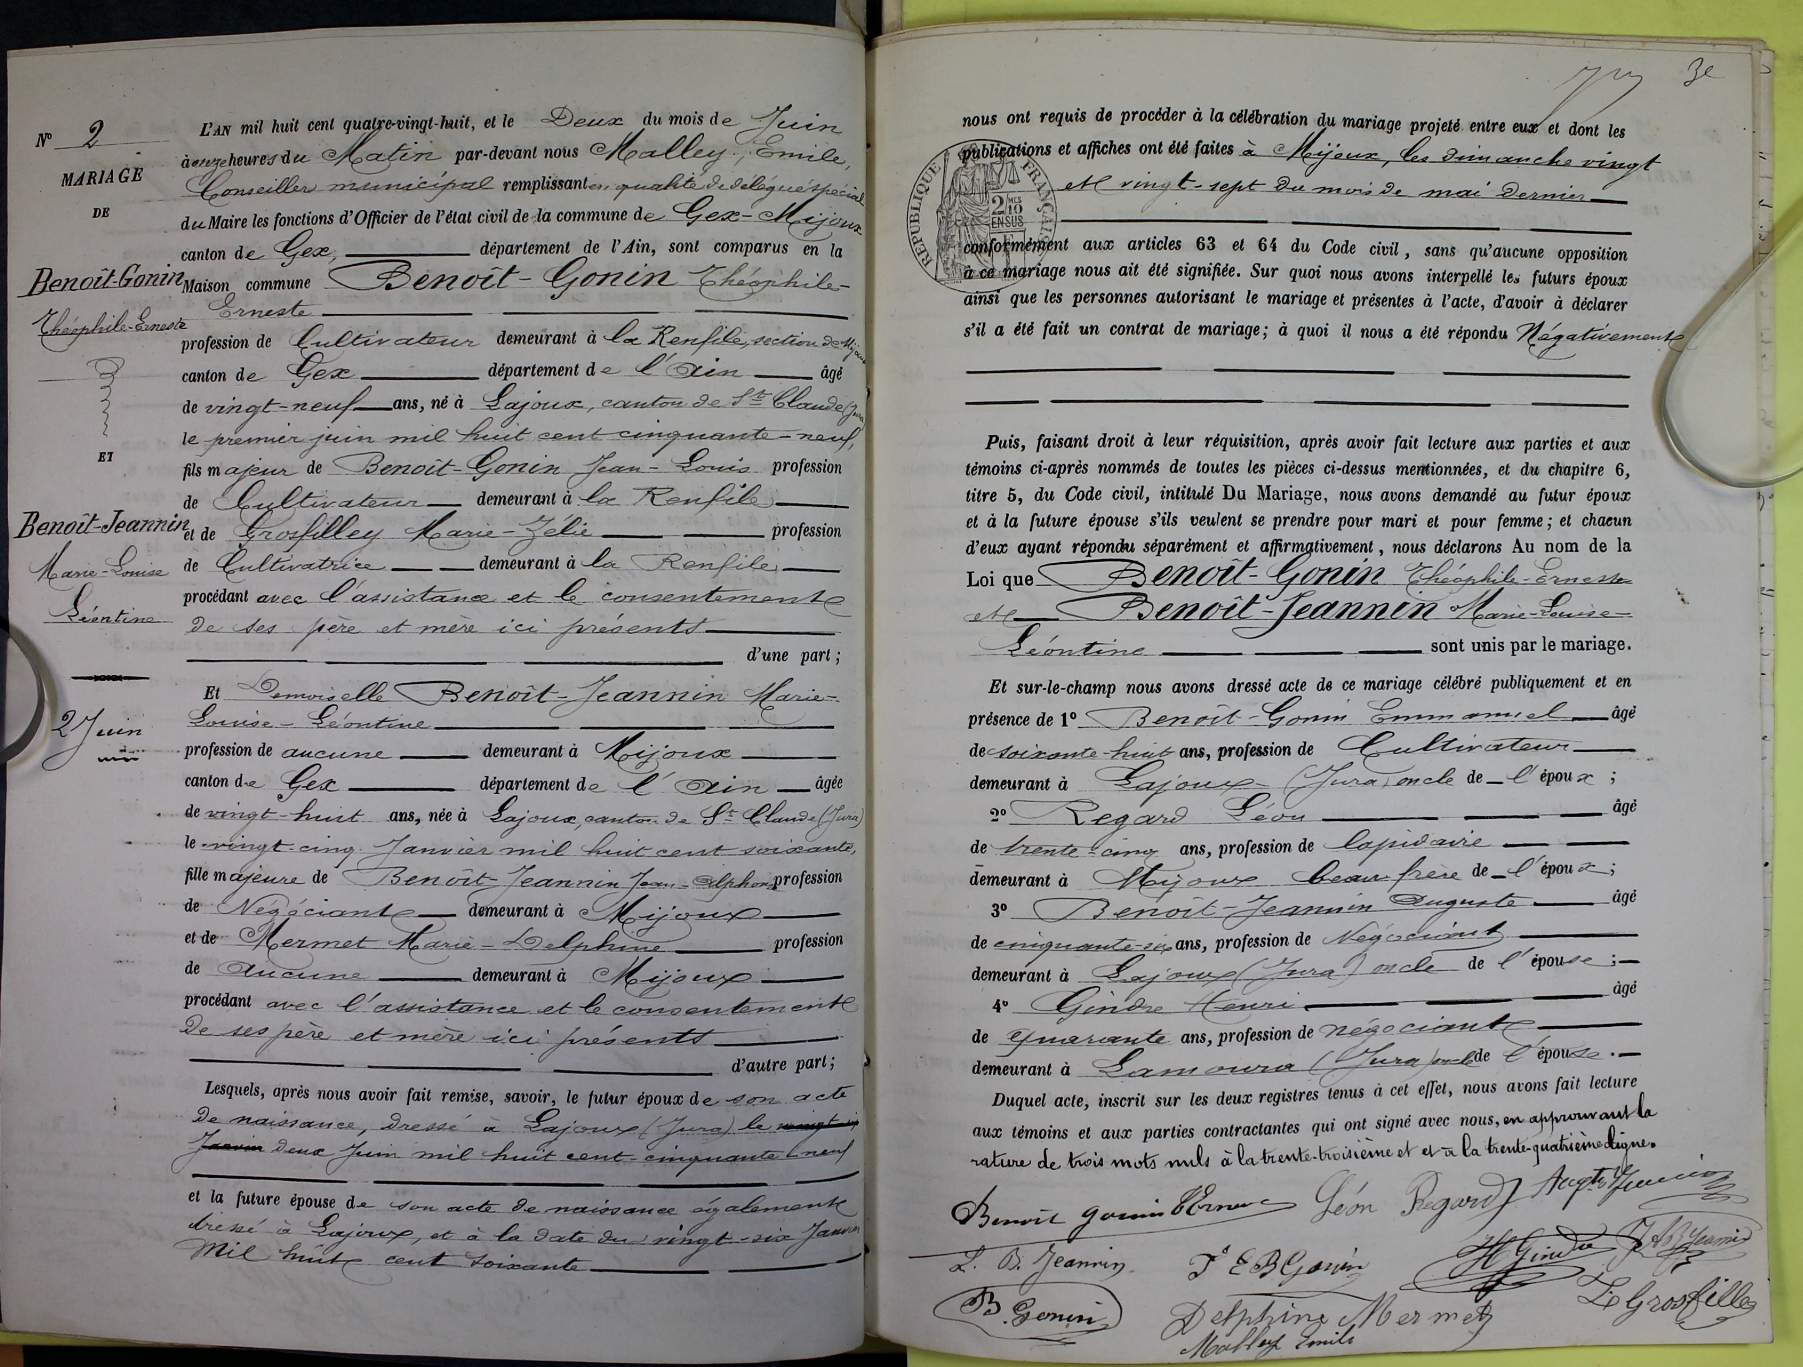 N° 2
MARIAGE
DE
Benoît-Gonin
Théophile-Erneste
ET
Benoît-Jeannin
Marie-Louise
Léontine
2 Juin
L'AN mil huit cent quatre-vingt-huit, et le Deux du mois de Juin
à onze heures du Matin par-devant nous Malley, Emile,
Conseiller municipal remplissant en qualité de délégué spécial
du Maire les fonctions d'Officier de l'état civil de la commune de Gex-Mijoux
canton de Gex, département de l'Ain, sont comparus en la
Maison commune Benoît-Gonin Théophile-
Erneste
profession de Cultivateur demeurant à la Renfile, section de Mijoux
canton de Gex département de l'Ain âgé
de vingt-neuf ans, né à Lajoux, canton de St Claude (Jura)
le premier juin mil huit cent cinquante-neuf,
fils majeur de Benoît-Gonin Jean-Louis profession
de Cultivateur demeurant à la Renfile
et de Grosfilley Marie-Zélie profession
de Cultivatrice demeurant à la Renfile
procédant avec l'assistance et le consentement
de ses père et mère ici présents
d'une part ;
Et Demoiselle Benoît-Jeannin Marie-
Louise-Léontine
profession de aucune demeurant à Mijoux
canton de Gex département de l'Ain âgée
de vingt-huit ans, née à Lajoux, canton de St Claude (Jura)
le vingt-cinq Janvier mil huit cent soixante,
fille majeure de Benoît-Jeannin Jean-Alphonse profession
de Négociant demeurant à Mijoux
et de Mermet Marie-Delphine profession
de aucune demeurant à Mijoux
procédant avec l'assistance et le consentement
de ses père et mère ici présents
d'autre part ;
Lesquels, après nous avoir fait remise, savoir, le futur époux de son acte
de naissance, dressé à Lajoux (Jura) le vingt-six
Janvier deux Juin mil huit cent cinquante-neuf
et la future épouse de son acte de naissance également
dressé à Lajoux, et à la date du vingt-six Janvier
Mil huit cent soixante
3e
nous ont requis de procéder à la célébration du mariage projeté entre eux et dont les
publications et affiches ont été faites à Mijoux, les dimanche vingt
et vingt-sept du mois de mai dernier
RÉPUBLIQUE FRANÇAISE
2 MES
10
EN SUS
conformément aux articles 63 et 64 du Code civil, sans qu'aucune opposition
à ce mariage nous ait été signifiée. Sur quoi nous avons interpellé les futurs époux
ainsi que les personnes autorisant le mariage et présentes à l'acte, d'avoir à déclarer
s'il a été fait un contrat de mariage ; à quoi il nous a été répondu Négativement
Puis, faisant droit à leur réquisition, après avoir fait lecture aux parties et aux
témoins ci-après nommés de toutes les pièces ci-dessus mentionnées, et du chapitre 6,
titre 5, du Code civil, intitulé Du Mariage, nous avons demandé au futur époux
et à la future épouse s'ils veulent se prendre pour mari et pour femme ; et chacun
d'eux ayant répondu séparément et affirmativement, nous déclarons Au nom de la
Loi que Benoît-Gonin Théophile-Ernest
et Benoît-Jeannin Marie-Louise-
Léontine sont unis par le mariage.
Et sur-le-champ nous avons dressé acte de ce mariage célébré publiquement et en
présence de 1° Benoît-Gonin Emmanuel âgé
de soixante-huit ans, profession de Cultivateur
demeurant à Lajoux (Jura) oncle de l'époux ;
2° Regard Léon âgé
de trente-cinq ans, profession de lapidaire
demeurant à Mijoux beau frère de l'époux ;
3° Benoît-Jeannin Auguste âgé
de cinquante-six ans, profession de Négociant
demeurant à Lajoux (Jura) oncle de l'épouse ;
4° Gindre Henri âgé
de Quarante ans, profession de négociant
demeurant à Lamoura (Jura) oncle de l'épouse.
Duquel acte, inscrit sur les deux registres tenus à cet effet, nous avons fait lecture
aux témoins et aux parties contractantes qui ont signé avec nous, en approuvant la
rature de trois mots nuls à la trente-troisième et et à la trente-quatrième ligne.
Benoît gonin Ernest Léon Regard Augte Jeannin
L. B. Jeannin Td E B Gonin H Gindre J A B Jeannin
B. Gonin Delphine Mermet Z Grosfilley
Malley Emile